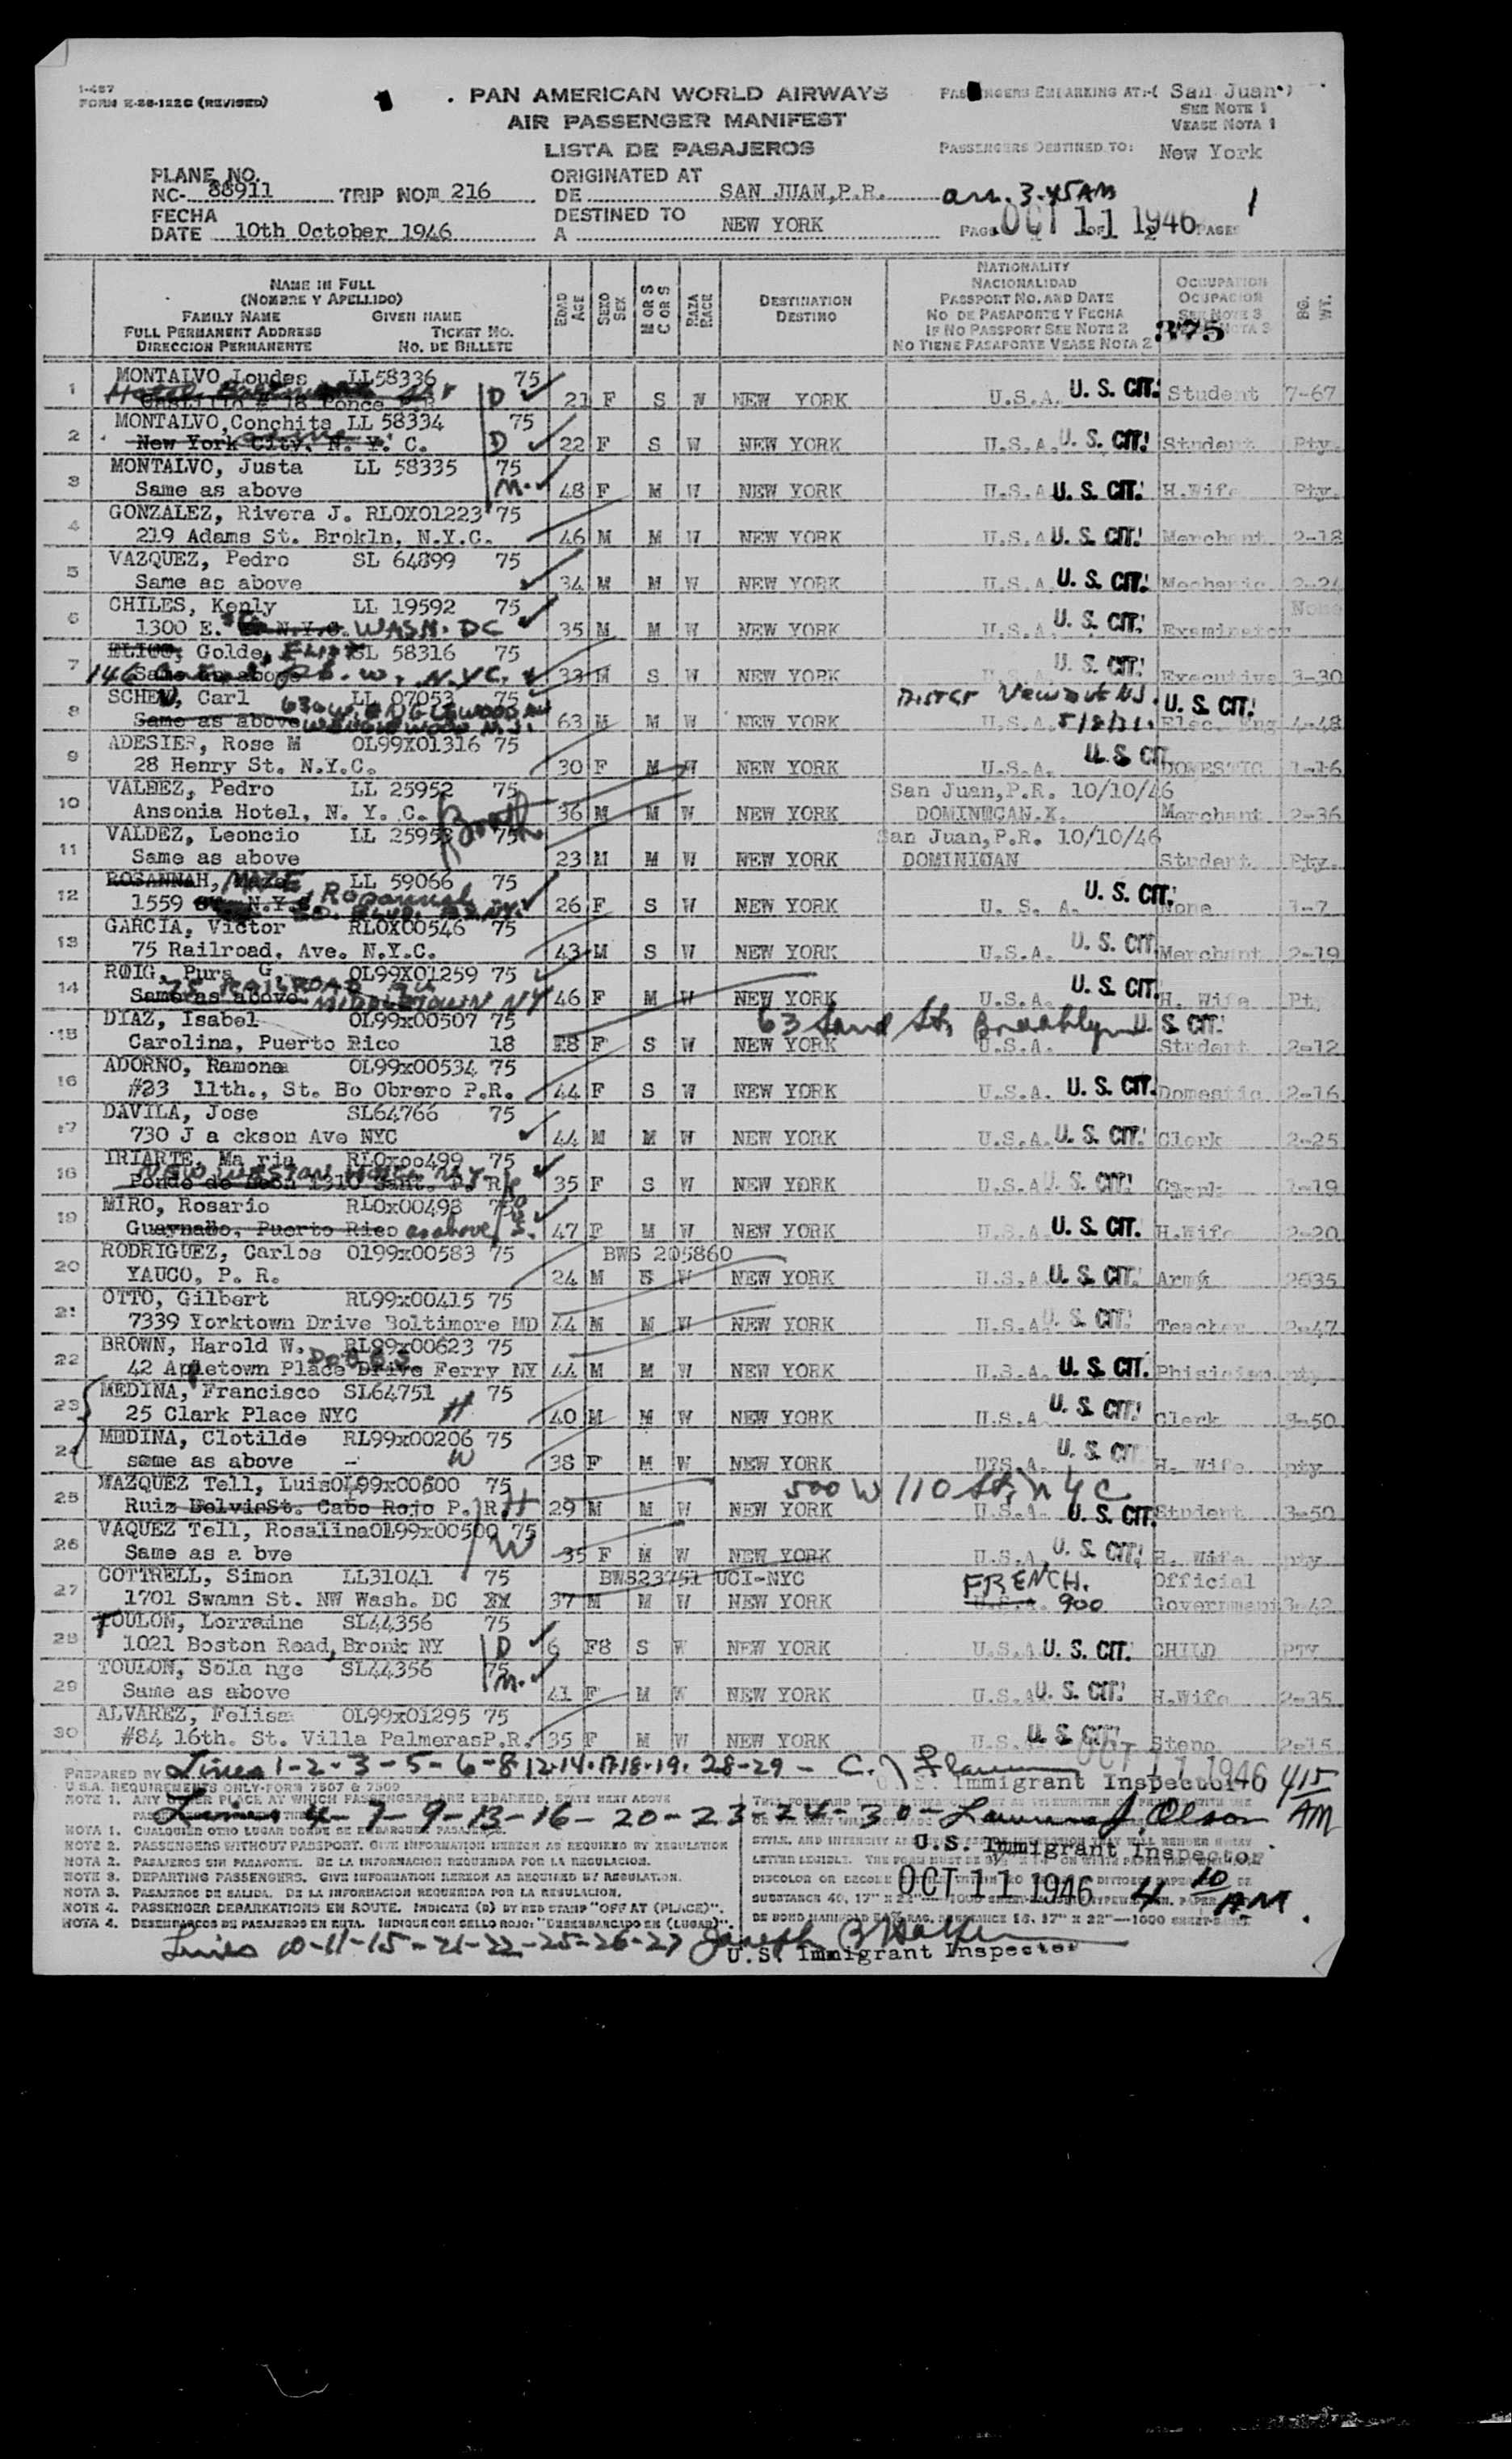 1-487
FORM E-26-122C (REVISED)
PAN AMERICAN WORLD AIRWAYS
AIR PASSENGER MANIFEST
LISTA DE PASAJEROS
PASSENGERS EMBARKING AT:-( San Juan )
SEE NOTE 1
VEASE NOTA 1
PASSENGERS DESTINED TO: New York
PLANE NO.
NC- 88911 TRIP NO. 216
ORIGINATED AT
DE SAN JUAN,P.R. arr. 3.45AM
FECHA
DATE 10th October 1946
DESTINED TO
A NEW YORK
PAGE OCT 11 1946 PAGES
1
NAME IN FULL
(NOMBRE Y APELLIDO)
FAMILY NAME GIVEN NAME
FULL PERMANENT ADDRESS TICKET NO.
DIRECCION PERMANENTE NO. DE BILLETE
EDAD AGE
SEXO SEX
M OR S C OR S
RAZA RACE
DESTINATION
DESTINO
NATIONALITY
NACIONALIDAD
PASSPORT NO. AND DATE
NO DE PASAPORTE Y FECHA
IF NO PASSPORT SEE NOTE 2
NO TIENE PASAPORTE VEASE NOTA 2
OCCUPATION
OCUPACION
SEE NOTE 3
375
BG. WT.
1 MONTALVO Loudes LL58336 75
Castillo # 18 Ponce P.R D 21 F S W NEW YORK U.S.A. U. S. CIT. Student 7-67
2 MONTALVO,Conchita LL 58334 75
New York City. N. Y. C. D 22 F S W NEW YORK U.S.A. U. S. CIT. Student Pty.
3 MONTALVO, Justa LL 58335 75
Same as above M. 48 F M W NEW YORK U.S.A U. S. CIT. H.Wife Pty.
4 GONZALEZ, Rivera J. RLOX01223 75
219 Adams St. Brokln. N.Y.C. 46 M M W NEW YORK U.S.A U. S. CIT. Merchant 2-18
5 VAZQUEZ, Pedro SL 64899 75
Same as above 34 M M W NEW YORK U.S.A U. S. CIT. Mechanic 2-24
6 CHILES, Kenly LL 19592 75 None
1300 E. N.Y.C. WASH. DC 35 M M W NEW YORK U.S.A. U. S. CIT. Examinator
7 Golde, SL 58316 75
146 Same as above W. N.YC. 33 M S W NEW YORK U. S. CIT. Executive 3-30
8 SCHEW, Carl LL 07053 75
Same as above 630 W. ENGLEWOOD AV 63 M M W NEW YORK U.S.A. 5/2/31. U. S. CIT. Elec. Eng 4-48
9 ADESIER, Rose M OL99X01316 75
28 Henry St. N.Y.C. 30 F M W NEW YORK U.S.A. U. S CIT DOMESTIC 1-16
10 VALDEZ, Pedro LL 25952 75 San Juan,P.R. 10/10/46
Ansonia Hotel, N. Y. C. 36 M M W NEW YORK DOMINICAN.K. Merchant 2-36
11 VALDEZ, Leoncio LL 25953 75 San Juan,P.R. 10/10/46
Same as above 23 M M W NEW YORK DOMINICAN Student Pty.
12 ROSANNAH, MAZE LL 59066 75
1559 N.Y.C 26 F S W NEW YORK U. S. A. U. S. CIT. None 1-7
13 GARCIA, Victor RLOX00546 75
75 Railroad. Ave. N.Y.C. 43 M S W NEW YORK U.S.A. U. S. CIT. Merchant 2-19
14 ROIG, Pura G. OL99X01259 75
Same as above 75 RAILROAD AV MIDDLETOWN NY 46 F M W NEW YORK U.S.A. U. S. CIT. H. Wife Pty
15 DIAZ, Isabel OL99x00507 75 63 Sand St. Brooklyn U. S. CIT.
Carolina, Puerto Rico 18 F S W NEW YORK U.S.A. Student 2-12
16 ADORNO, Ramona OL99x00534 75
#23 11th., St. Bo Obrero P.R. 44 F S W NEW YORK U.S.A. U. S. CIT. Domestic 2-16
17 DAVILA, Jose SL64766 75
730 J a ckson Ave NYC 44 M M W NEW YORK U.S.A. U. S. CIT. Clerk 2-25
18 IRIARTE, Ma ria RLOxoo499 75
Ponde de Leon 1310 Sant. P. R 35 F S W NEW YORK U.S.A U. S. CIT. 1-19
19 MIRO, Rosario RLOx00498 75
Guaynabo, Puerto Rico as above 47 F M W NEW YORK U.S.A U. S. CIT. H.Wife 2-20
20 RODRIGUEZ, Carlos Ol99x00583 75 BWS 205860
YAUCO, P. R. 24 M S W NEW YORK U.S.A U. S. CIT. Army 2035
21 OTTO, Gilbert RL99x00415 75
7339 Yorktown Drive Boltimore MD 44 M M W NEW YORK U.S.A. U. S. CIT. Teacher 2-47
22 BROWN, Harold W. RL99x00623 75
42 Appletown Place Drive DOBBS Ferry NY 44 M M W NEW YORK U.S.A. U. S. CIT. Phisician pty
23 MEDINA, Francisco SL64751 75
25 Clark Place NYC H 40 M M W NEW YORK U.S.A U. S. CIT. Clerk 3-50
24 MEDINA, Clotilde RL99x00206 75
same as above W 38 F M W NEW YORK U?S.A. U. S. CIT H. Wife pty
25 MAZQUEZ Tell, LuisOL99x00600 75 500 W 110 St. N Y C
Ruiz BelvisSt. Cabo Rojo P. R H 29 M M W NEW YORK U.S.A. U. S. CIT. Student 3-50
26 VAQUEZ Tell, RosalinaOL99x00500 75
Same as a bve W 35 F M W NEW YORK U.S.A. U. S. CIT. H. Wife pty
27 COTTRELL, Simon LL31041 75 BWS23751 UCI-NYC FRENCH. Official
1701 Swamn St. NW Wash. DC XX 37 M M W NEW YORK U.S.A. 900 Government 3-42
28 TOULON, Lorraine SL44356 75
1021 Boston Road, Bronk NY D 6 F8 S W NEW YORK U.S.A U. S. CIT. CHILD PTY
29 TOULON, Sola nge SL44356 75
Same as above M. 41 F M W NEW YORK U.S.A U. S. CIT. H.Wife 2-35
30 ALVAREZ, Felisa OL99x01295 75
#84 16th. St. Villa PalmerasP.R. 35 F M W NEW YORK U.S. U. S CIT. Steno 2-15
PREPARED BY Lines 1-2-3-5-6-8-12-14-17-18-19-28-29- OCT 11 1946 415 AM
U.S.A. REQUIREMENTS ONLY-FORM 7507 & 7509 U. S. Immigrant Inspector
NOTE 1. ANY OTHER PLACE AT WHICH PASSENGERS ARE EMBARKED, STATE NEXT ABOVE
Lines 4-7-9-13-16-20-23-24-30- Lawrence J. Olson
NOTA 1. CUALQUIER OTRO LUGAR DONDE SE EMBARQUEN PASAJEROS.
U.S. Immigrant Inspector
NOTE 2. PASSENGERS WITHOUT PASSPORT. GIVE INFORMATION HEREON AS REQUIRED BY REGULATION
NOTA 2. PASAJEROS SIN PASAPORTE. DE LA INFORMACION REQUERIDA POR LA REGULACION.
NOTE 3. DEPARTING PASSENGERS. GIVE INFORMATION HEREON AS REQUIRED BY REGULATION.
OCT 11 1946 4 10 AM
NOTA 3. PASAJEROS DE SALIDA. DE LA INFORMACION REQUERIDA POR LA REGULACION.
NOTE 4. PASSENGER DEBARKATIONS EN ROUTE. INDICATE (B) BY RED STAMP "OFF AT (PLACE)".
NOTA 4. DESEMBARCOS DE PASAJEROS EN RUTA. INDIQUE CON SELLO ROJO: "DESEMBARCADO EN (LUGAR)".
DE BOND MANIFOLD 17" X 22"—1000 SHEET
Lines 10-11-15-21-22-25-26-27 Joseph B Walker
U.S. Immigrant Inspector